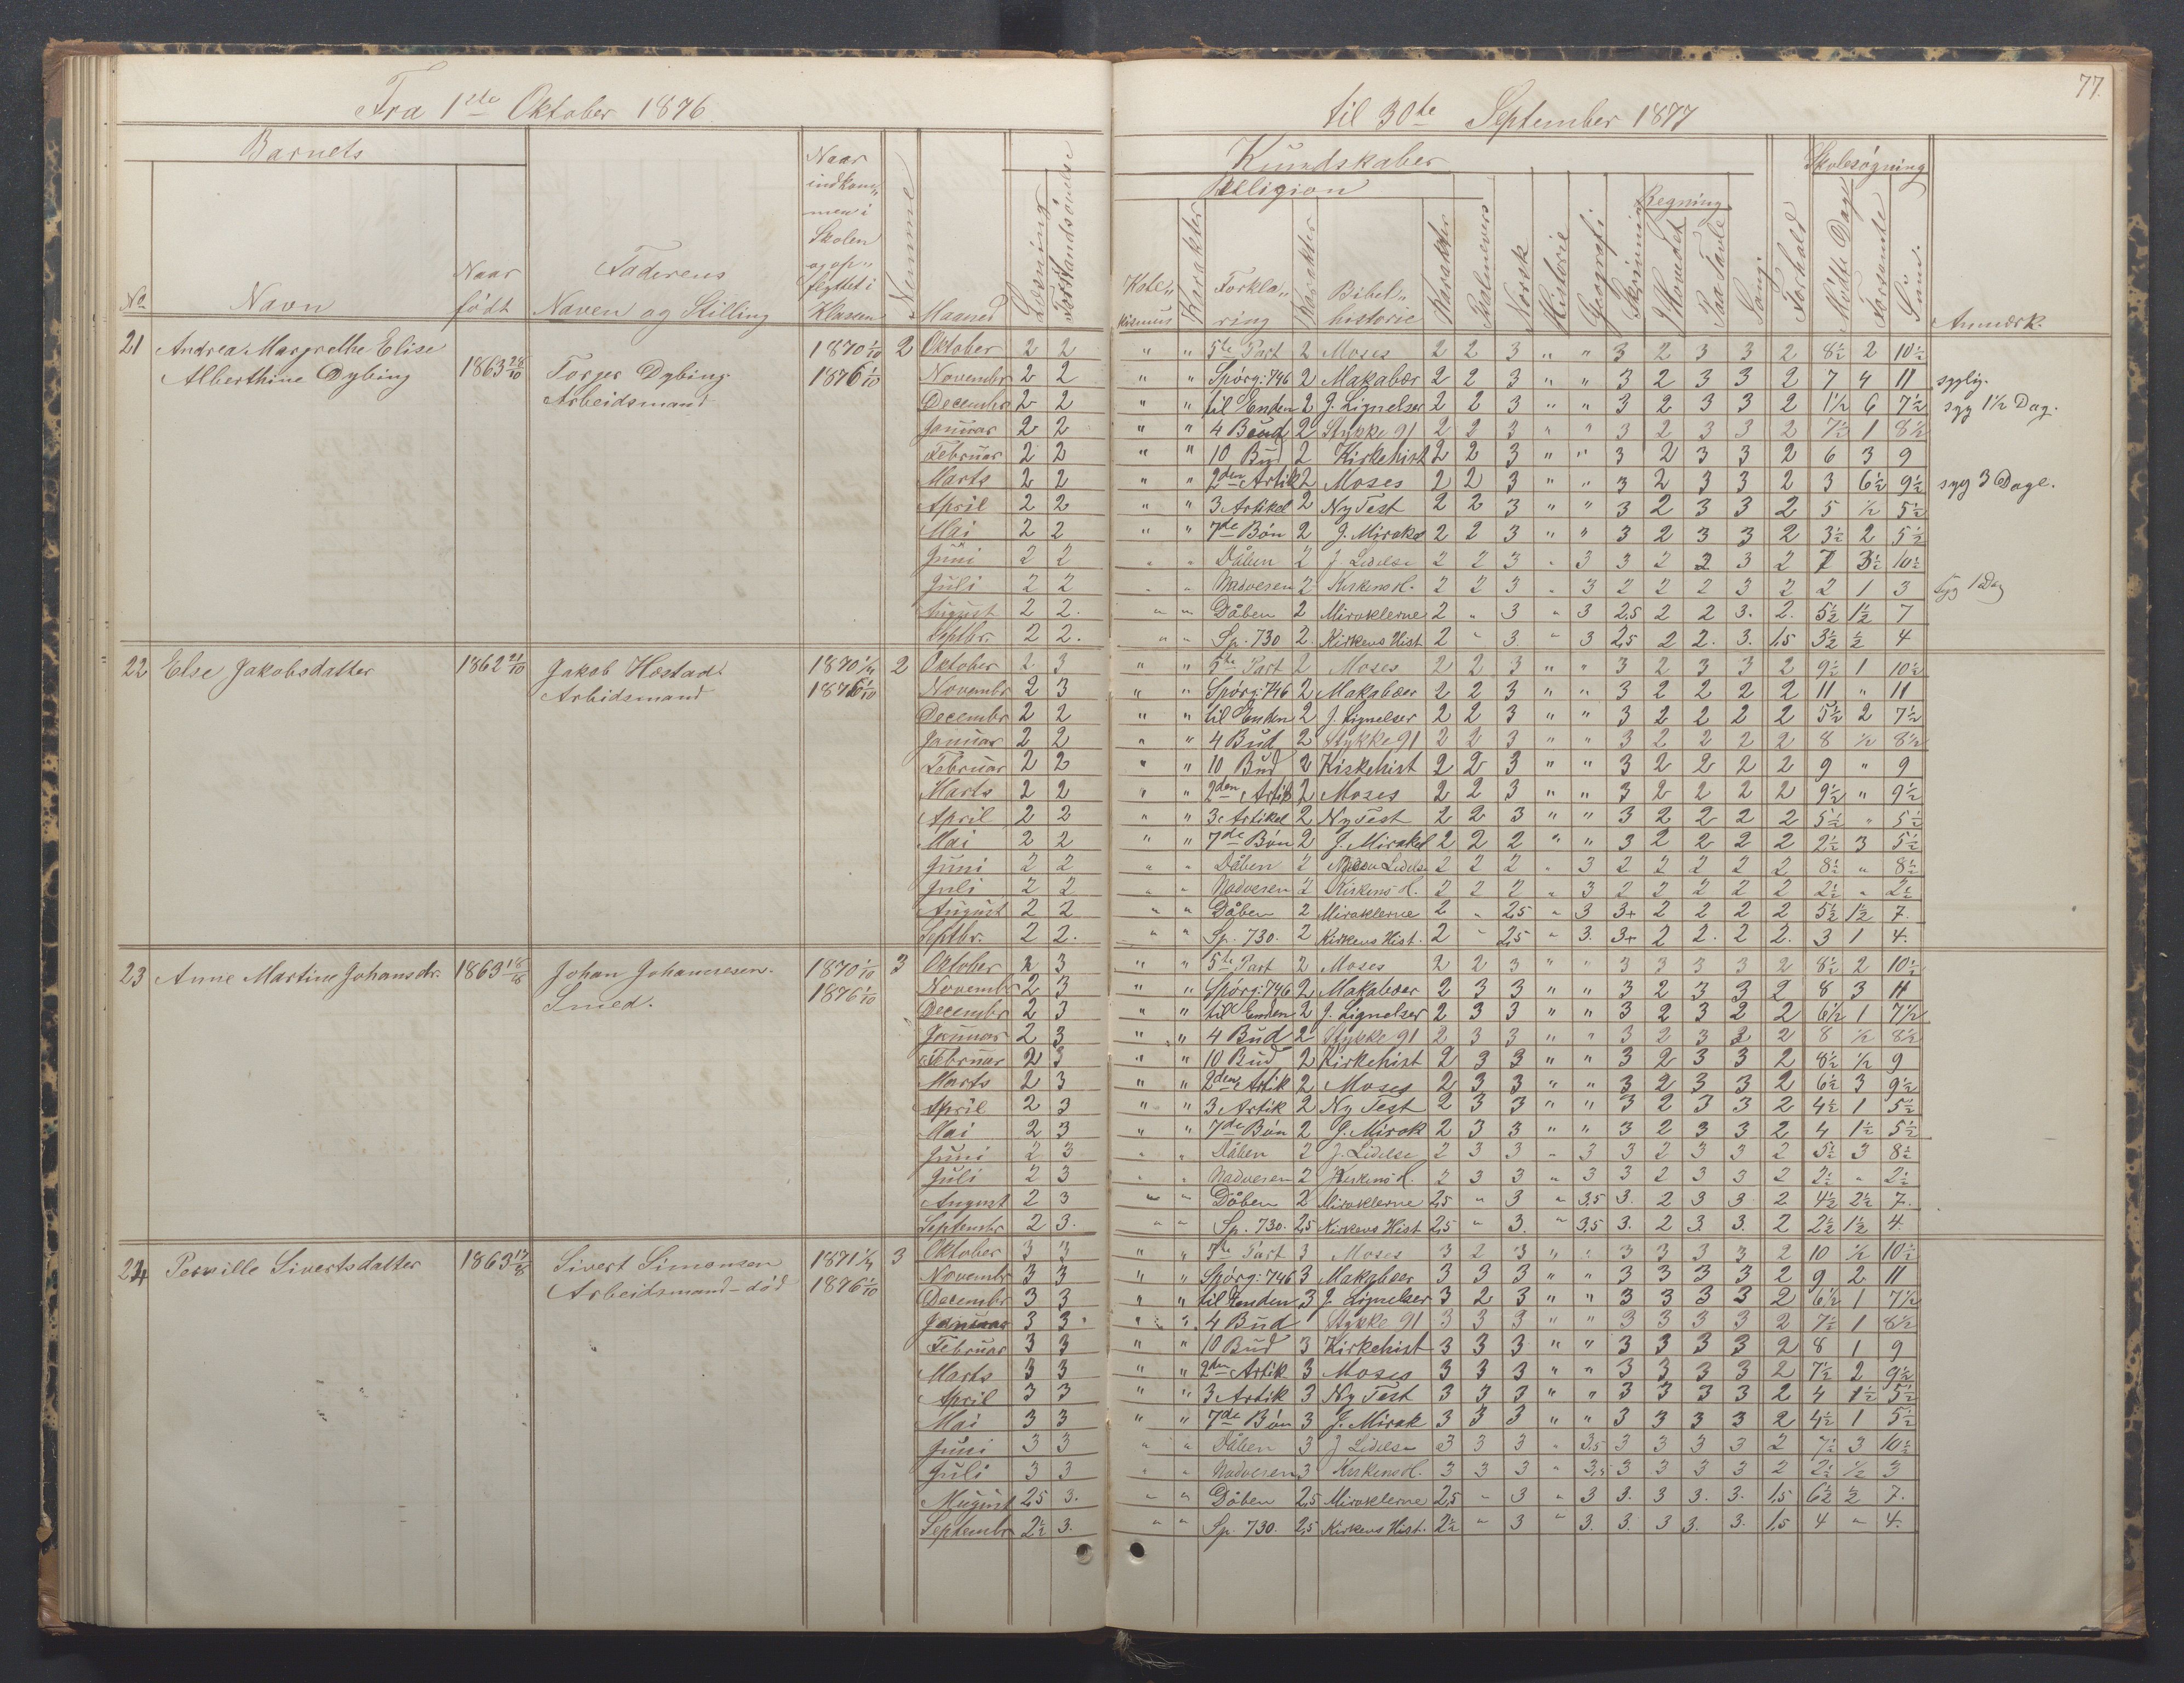 77.
Fra 1ste Oktober 1876
til 30te September 1877
Barnets
Kundskaber
Skolesøgning
Religion
Regning
No
Navn
Naar født
Faderens Naven og Stilling
Naar indkommen i Skolen og opflyttet i Klassen
Nemme
Maaned
Læsning
Forstandsøvelse
Katekismus
Karakter
Forklaring
Karakter
Bibelhistorie
Karakter
Salmevers
Norsk
Historie
Geografi
Skrivning
I Hovedet
Paa Tavle
Sang.
Forhold
Mødte Dage
Forsømte
Sum.
Anmærk.
21 Andrea Margrethe Elise Alberthine Dybing 1863 28/10 Torger Dybing Arbeidsmand 1870 1/10 1876 1/10 2
Oktober 2 2 " " 5te Part 2 Moses 2 2 3 " " 3 2 3 3 2 8½ 2 10½
Novembr 2 2 " " Spörg: 746 2 Makabær 2 2 3 " " 3 2 3 3 2 7 4 11 syglig.
Decembr 2 2 " " til Enden 2 J. Lignelser 2 2 3 " " 3 2 3 3 2 1½ 6 7½ syg 1½ Dag.
Januar 2 2 " " 4 Bud 2 Stykke 91 2 2 3 " " 3 2 3 3 2 7½ 1 8½
Februar 2 2 " " 10 Bud 2 Kirkehist 2 2 3 " " 3 2 3 3 2 6 3 9
Marts 2 2 " " 2den Artik 2 Moses 2 2 3 " " 3 2 3 3 2 3 6½ 9½ syg 3 Dage.
April 2 2 " " 3 Artikel 2 Ny Test 2 2 3 " " 3 2 3 3 2 5 ½ 5½
Mai 2 2 " " 7de Bön 2 J. Mirakel 2 2 3 " " 3 2 3 3 2 3½ 2 5½
Juni 2 2 " " Dåben 2 J. Lidelse 2 2 3 " 3 3 2 2 3 2 7 3½ 10½
Juli 2 2 " " Nadveren 2 Kirkens H. 2 2 3 " 3 2 2 2 3 2 2 1 3 Syg 1 Dag
August 2 2. " " Dåben 2 Miraklerne 2 " 3 " 3 2,5 2 2 3. 2. 5½ 1½ 7
Septbr. 2 2. " " Sp. 730 2. Kirkens Hist 2 " 3. " 3 2,5 2 2. 3. 1,5 3½ ½ 4
22 Else Jakobsdatter 1862 21/10 Jakob Hostad. Arbidsmand 1870 1/4 1876 1/10 2
Oktober 2. 3 " " 5te Part 2 Moses 2 2 3 " " 3 2 3 3 2 9½ 1 10½
Novembr 2 3 " " Spörg: 746 2 Makabæer 2 2 3 " " 3 2 2 2 2 11 " 11
Decembr 2 2 " " til Enden 2 J. Lignelser 2 2 3 " " 3 2 2 2 2 5½ 2 7½
Januar 2 2 " " 4 Bud 2 Stykke 91 2 2 3 " " 3 2 2 2 2 8 ½ 8½
Februar 2 2 " " 10 Bud 2 Kirkehist 2 2 3 " " 3 2 2 2 2 9 " 9
Marts 2 2 " " 2den Artik 2 Moses 2 2 3 " " 3 2 2 2 2 9½ " 9½
April 2 2 " " 3 Artikel 2 Ny Test 2 2 3 " " 3 2 2 2 2 5½ " 5½
Mai 2 2 " " 7de Bön 2 J. Mirakel 2 2 2 " " 3 2 2 2 2 2½ 3 5½
Juni 2 2 " " Dåben 2 Lidelse 2 2 2 " 3 2 2 2 2 2 8½ " 8½
Juli 2 2 " " Nadveren 2 Kirkens H. 2 2 2 " 3 2 2 2 2 2 2½ " 2½
August 2 2 " " Dåben 2 Miraklerne 2 " 2,5 " 3 3+ 2 2 2 2 5½ 1½ 7.
Septbr. 2 2. " " Sp. 730. 2 Kirkens Hist. 2 " 2,5 " 3. 3+ 2 2. 2 2. 3 1 4.
23 Anne Martine Johansdr. 1863 18/8 Johan Johannesen. Smed. 1870 1/10 1876 1/10 3
Oktober 2 3 " " 5te Part 2 Moses 2 2 3 " " 3 3 3 3 2 8½ 2 10½
Novembr 2 3 " " Spörg: 746 2 Makabæer 2 3 3 " " 3 2 3 3 2 8 3 11
Decembr 2 3 " " til Enden 2 J. Lignelser 2 3 3 " " 3 2 3 2 2 6½ 1 7½
Januar 2 3 " " 4 Bud 2 Stykke 91 2 3 3 " " 3 2 3 3 2 8 ½ 8½
Februar 2 3 " " 10 Bud 2 Kirkehist 2 3 3 " " 3 2 3 3 2 8½ ½ 9
Marts 2 3 " " 2den Artik 2 Moses 2 3 3 " " 3 2 3 3 2 6½ 3 9½
April 2 3 " " 3 Artik 2 Ny Test 2 3 3 " " 3 2 3 3 2 4½ 1 5½
Mai 2 3 " " 7de Bön 2 J. Mirak 2 3 3 " " 3 2 3 3 2 4 1½ 5½
Juni 2 3 " " Dåben 2 J. Lidelse 2 3 3 " 3 3 2 3 3 2 5½ 3 8½
Juli 2 3 " " Nadveren 2 Kirkens H. 2 3 3 " 3 3 2 3 3 2 2½ " 2½
August 2 3 " " Dåben 2 Miraklerne 2,5 " 3 " 3,5 3. 2 3 3 2 4½ 2½ 7.
Septembr 2 3. " " Sp. 730. 2,5 Kirkens Hist 2,5 " 3. " 3,5 3. 2 3 3. 2 2½ 1½ 4.
24 Pernille Sivertsdatter 1863 17/8 Sivert Simonsen Arbeidsmand - död 1871 1/4 1876 1/10 3
Oktober 3 3 " " 5te Part 3 Moses 3 2 3 " " 3 3 3 3 2 10 ½ 10½
Novembr 3 3 " " Spörg: 746 3 Makabæer 3 3 3 " " 3 3 3 3 2 9 2 11
Decembr 3 3 " " til Enden 3 J. Lignelser 3 2 3 " " 3 3 3 3 2 6½ 1 7½
Januar 3 3 " " 4 Bud Stykke 91 3 3 3 " " 3 3 3 3 2 7½ 1 8½
Februar 3 3 " " 10 Bud 3 Kirkehist 3 3 3 " " 3 3 3 3 2 8 1 9
Marts 3 3 " " 2den Artik 3 Moses 3 3 3 " " 3 3 3 3 2 7½ 2 9½
April 3 3 " " 3 Artik 3 Ny Test 3 3 3 " " 3 3 3 3 2 4 1½ 5½
Mai 3 3 " " 7de Bön 3 J. Mirak 3 3 3 " " 3 3 3 3 2 4½ 1 5½
Juni 3 3 " " Dåben 3 J Lidelse 3 3 3 " 3,5 3 3 3 3 2 7½ 3 10½
Juli 3 3 " " Nadveren 3 Kirkens H. 3 3 3 " 3,5 3 3 3 3 2 2½ ½ 3
August 2,5 3. " " Dåben 2,5 Miraklerne 2,5 " 3 " 3 3. 3 3. 3. 1,5 6½ ½ 7.
Septembr 2½ 3. " " Sp. 730. 2,5 Kirkens Hist. 2½ " 3 " 3. 3. 3 3. 3. 1,5 4 " 4.